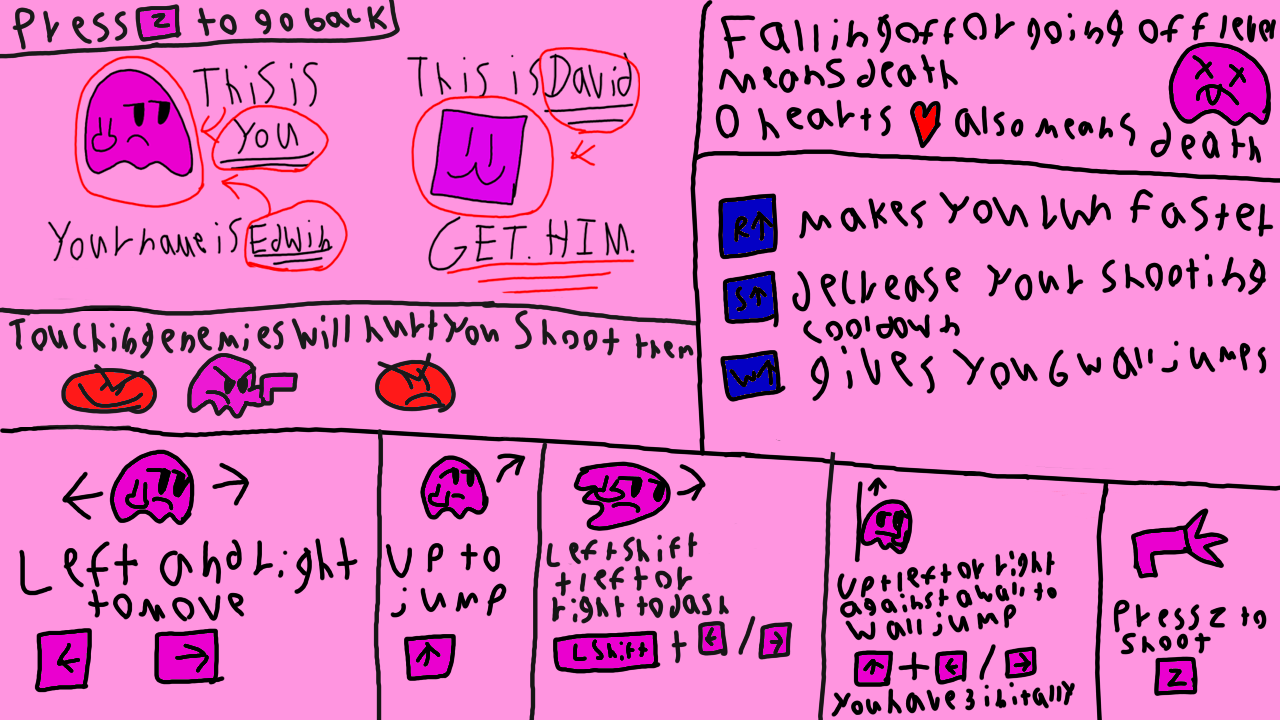 Press Z to go back
This is
You
Your name is Edwin
This is David
GET. HIM.
Falling off or going off level
means death
0 hearts also means death
R↑ makes you run faster
S↑ decrease your shooting
cooldown
W↑ gives you 6 wall jumps
Touching enemies will hurt you Shoot them
Left and right
to move
← →
Up to
jump
↑
Left shift
+ left or
right to dash
LShift + ← / →
Up + left or right
against a wall to
wall jump
↑ + ← / →
You have 3 initially
Press z to
shoot
Z